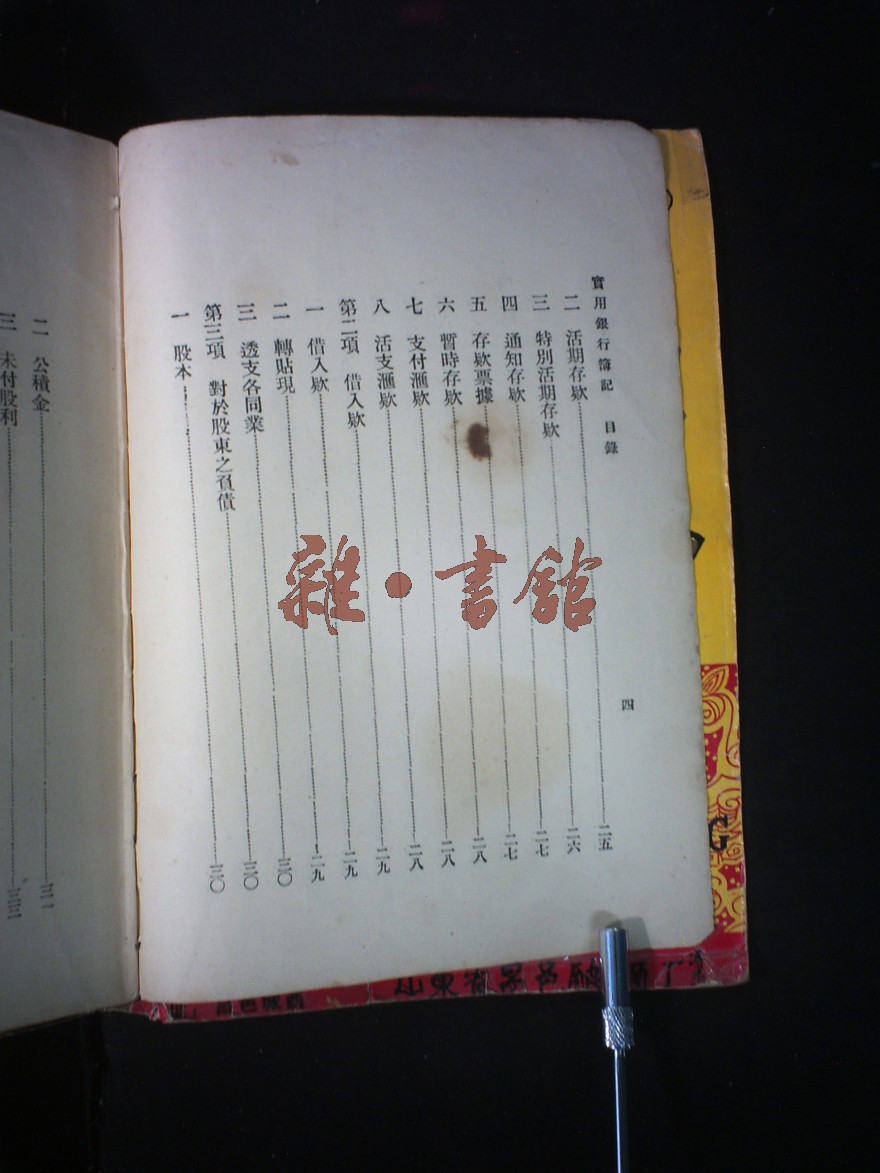 實用銀行簿記 目錄 四
二 活期存欵 二五
三 特別活期存欵 二六
四 通知存欵 二七
五 存欵票據 二七
六 暫時存欵 二八
七 支付滙欵 二八
八 活支滙欵 二八
第二項 借入欵 二九
一 借入欵 二九
二 轉貼現 二九
三 透支各同業 三〇
第三項 對於股東之負債 三〇
一 股本 三〇
二 公積金 三一
三 未付股利
雜・書館
山東省
G